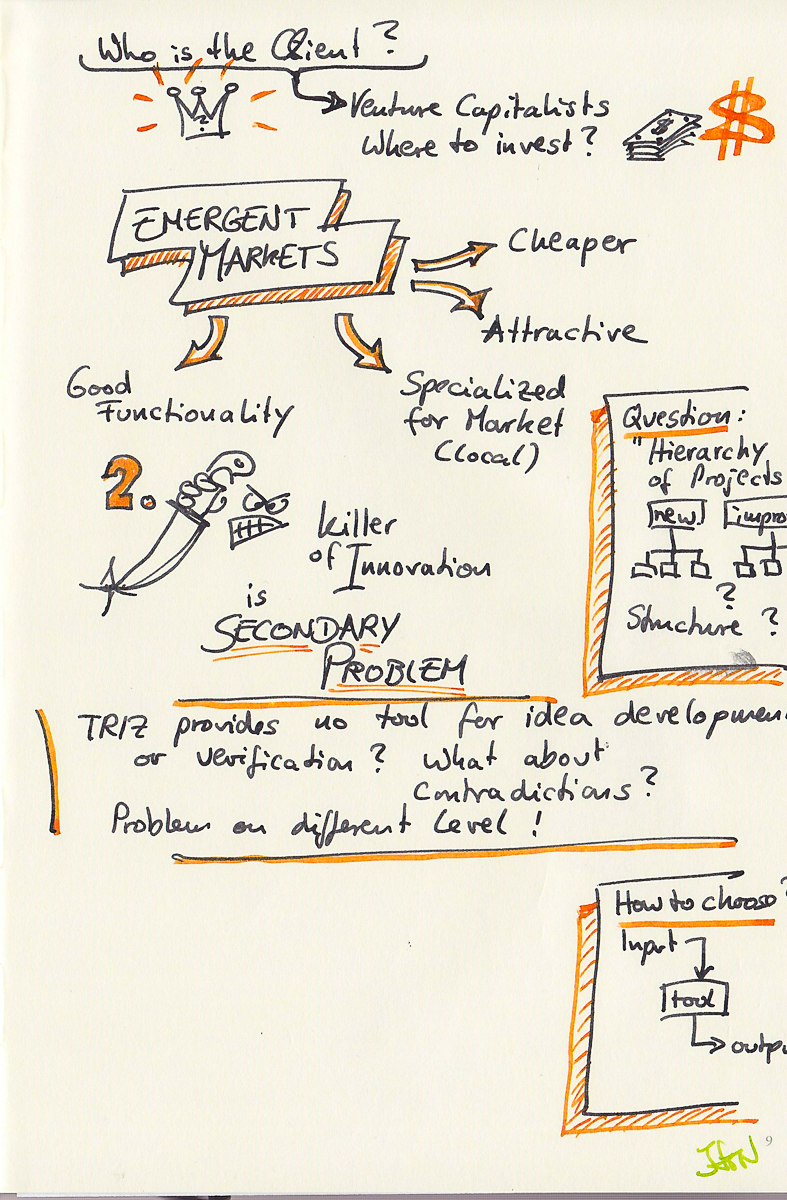 Who is the Client?
Venture Capitalists
Where to invest?
$
$
?
EMERGENT
MARKETS
Cheaper
Attractive
Good
Functionality
Specialized
for Market
(local)
2.
killer
of Innovation
is
SECONDARY
PROBLEM
Question:
"Hierarchy
of Projects
new
impro
?
Structure ?
TRIZ provides no tool for idea developmen
or verification? What about
contradictions?
Problem on different level!
How to choose?
Input
tool
outpu
9